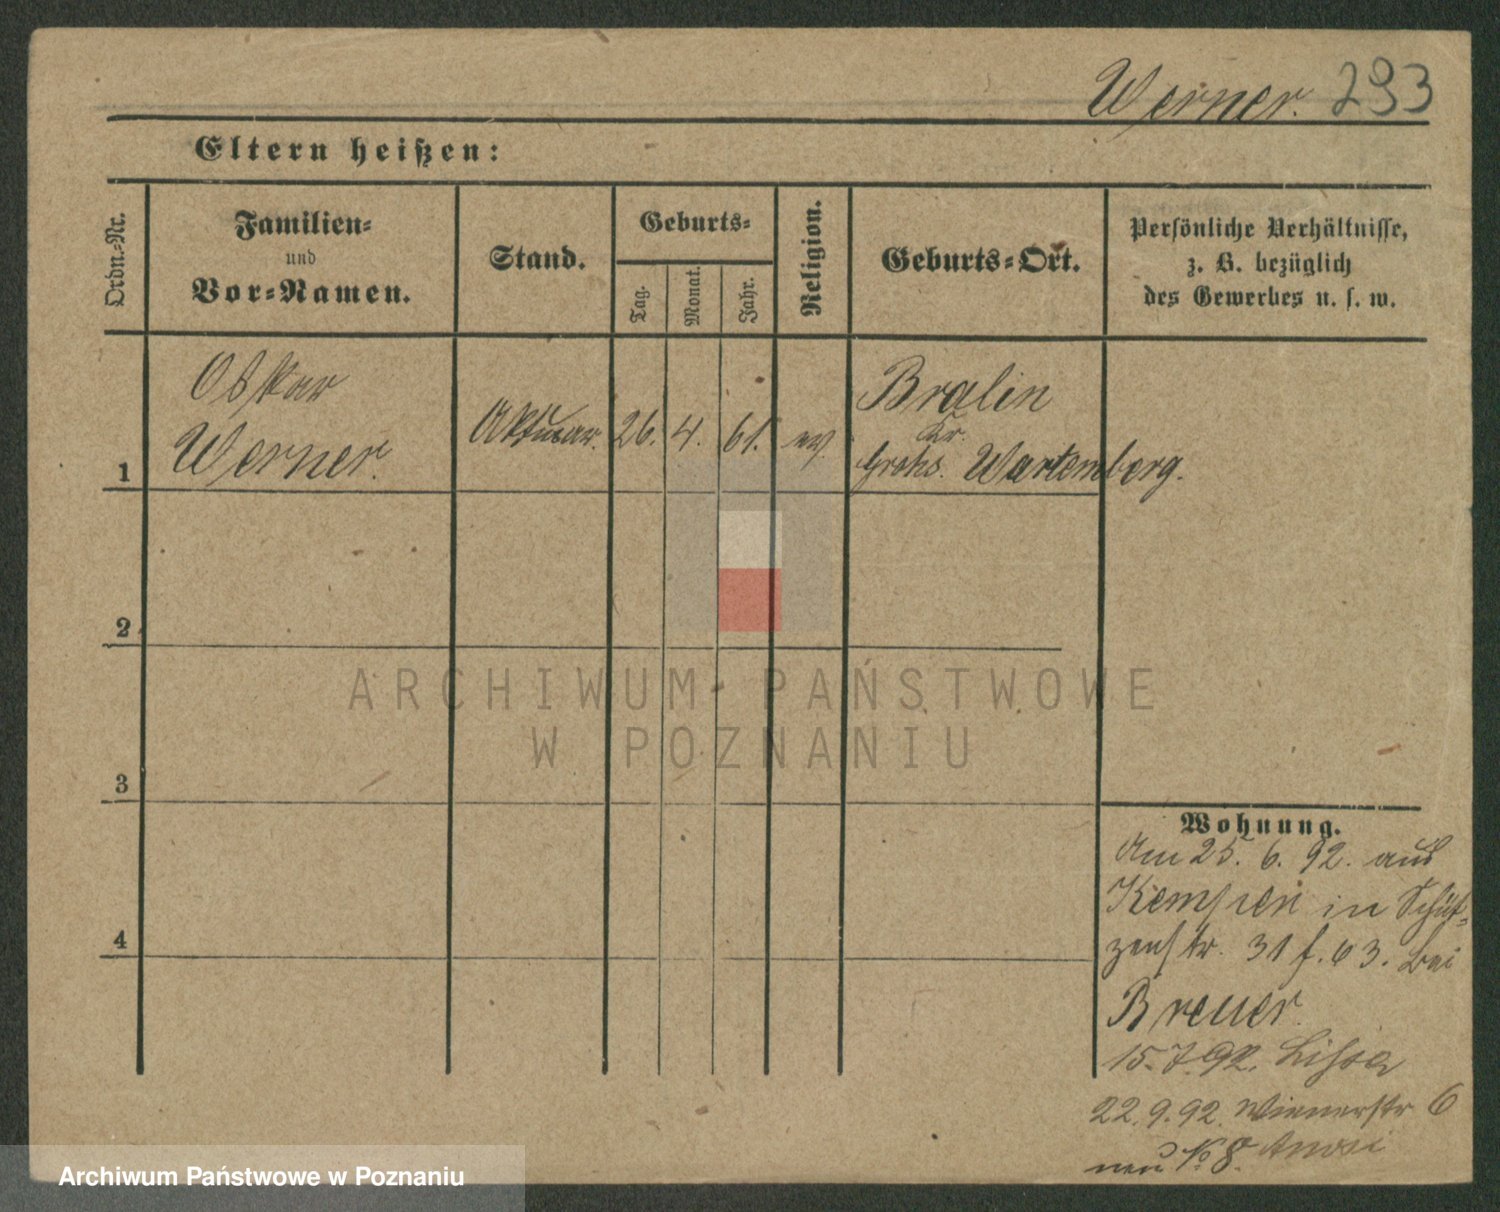 Werner. 293
Eltern heißen:
Ordn.-Nr.
Familien-
und
Vor-Namen.
Stand.
Geburts-
Tag.
Monat.
Jahr.
Religion.
Geburts-Ort.
Persönliche Verhältnisse,
z. B. bezüglich
des Gewerbes u. s. w.
1
Oskar
Werner.
Aktuar.
26.
4.
61.
ev.
Bralin
Kr.
Groß. Wartemberg.
2
3
4
Wohnung.
Am 25. 6. 92. aus
Kempen in Schüt-
zenstr. 31 f. 63. bei
Breuer.
15.7.92. Lissa
22.9.92. Wienerstr 6
neu No 8.
ARCHIWUM PAŃSTWOWE
W POZNANIU
Archiwum Państwowe w Poznaniu